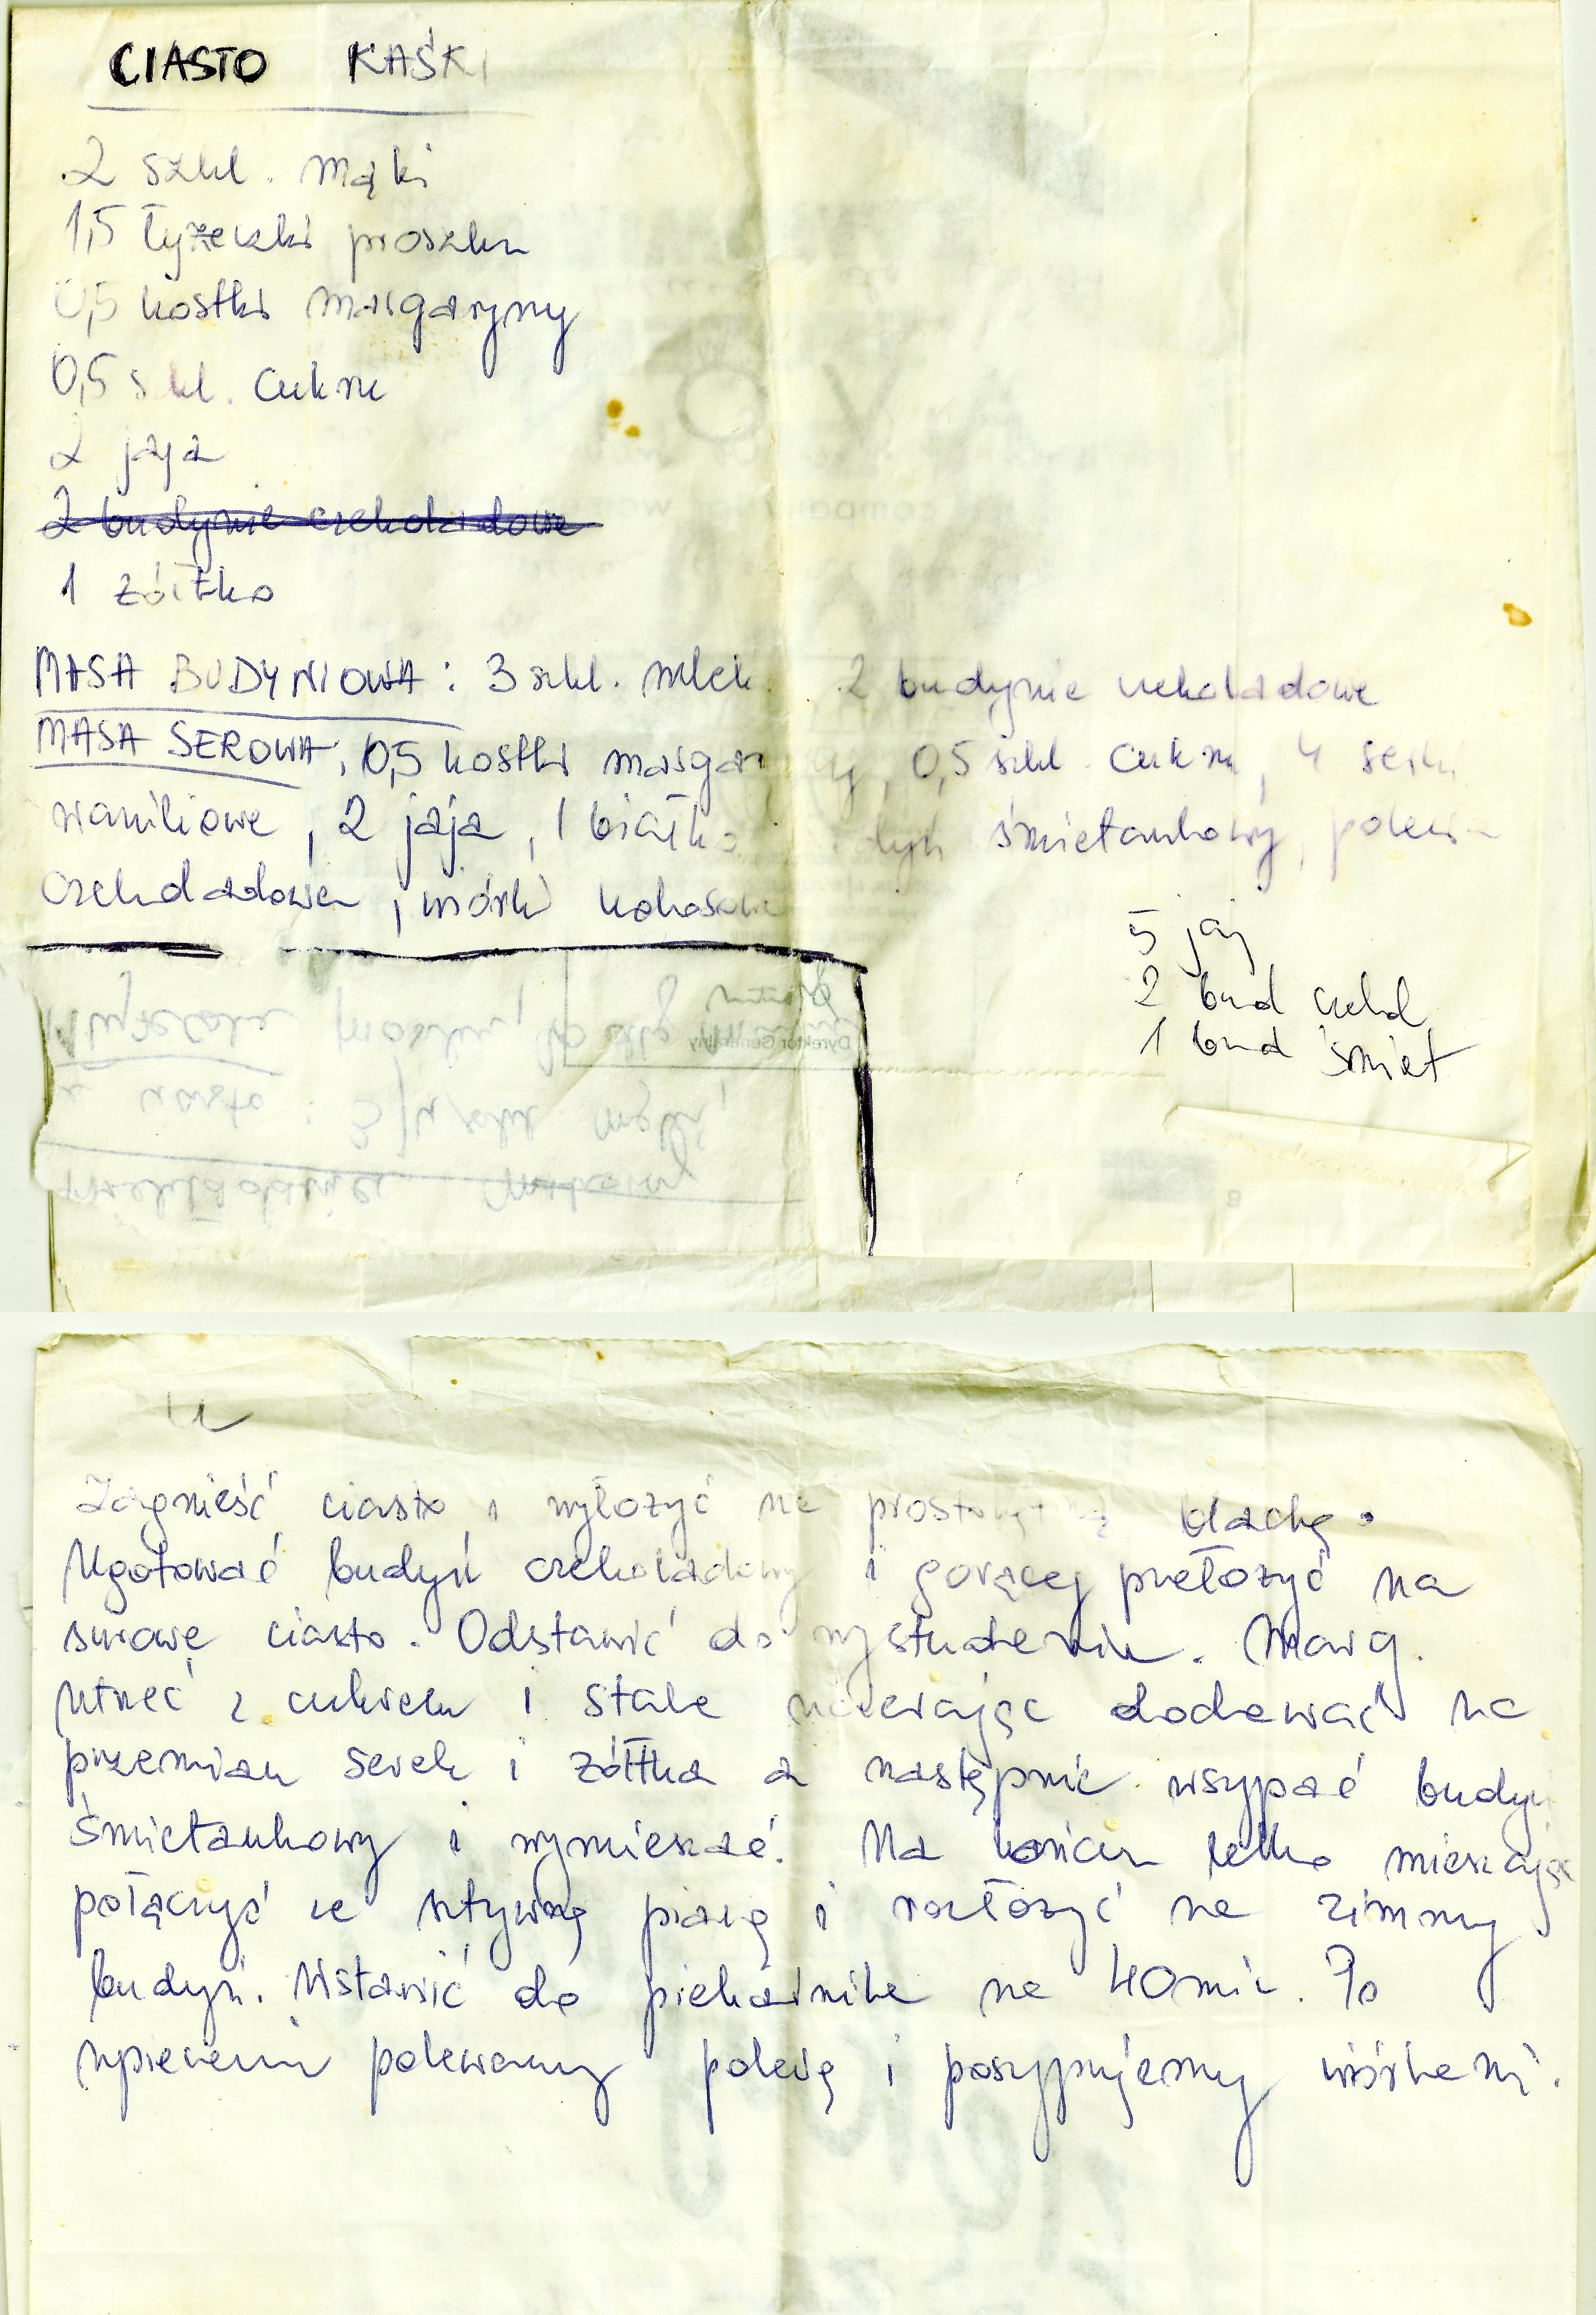 CIASTO KAŚKI
2 szkl. mąki
1,5 łyżeczki proszku
0,5 kostki margaryny
0,5 szkl. cukru
2 jaja
2 budynie czekoladowe
1 żółtko
MASA BUDYNIOWA: 3 szkl. mlek 2 budynie czekoladowe
MASA SEROWA, 0,5 kostki margaryny, 0,5 szkl. cukru, 4 serki
waniliowe, 2 jaja, 1 białko śmietankowy, polewa
czekoladowa, wiórki kokosowe
5 jaj
2 bud czekol
1 bud śmiet
Dyrektor Generalny
Zagnieść ciasto i wyłożyć na prostokątną blachę.
Ugotować budyń czekoladowy i gorący przełożyć na
surowe ciasto. Odstawić do wystudzenia. Marg.
utrzeć z cukrem i stale ucierając dodawać na
przemian serek i żółtka a następnie wsypać budyń
śmietankowy i wymieszać. Na końcu lekko mieszając
połączyć ze sztywną pianą i rozłożyć na zimny
budyń. Wstawić do piekarnika na 40 min. Po
upieczeniu polewamy polewą i posypujemy wiórkami.